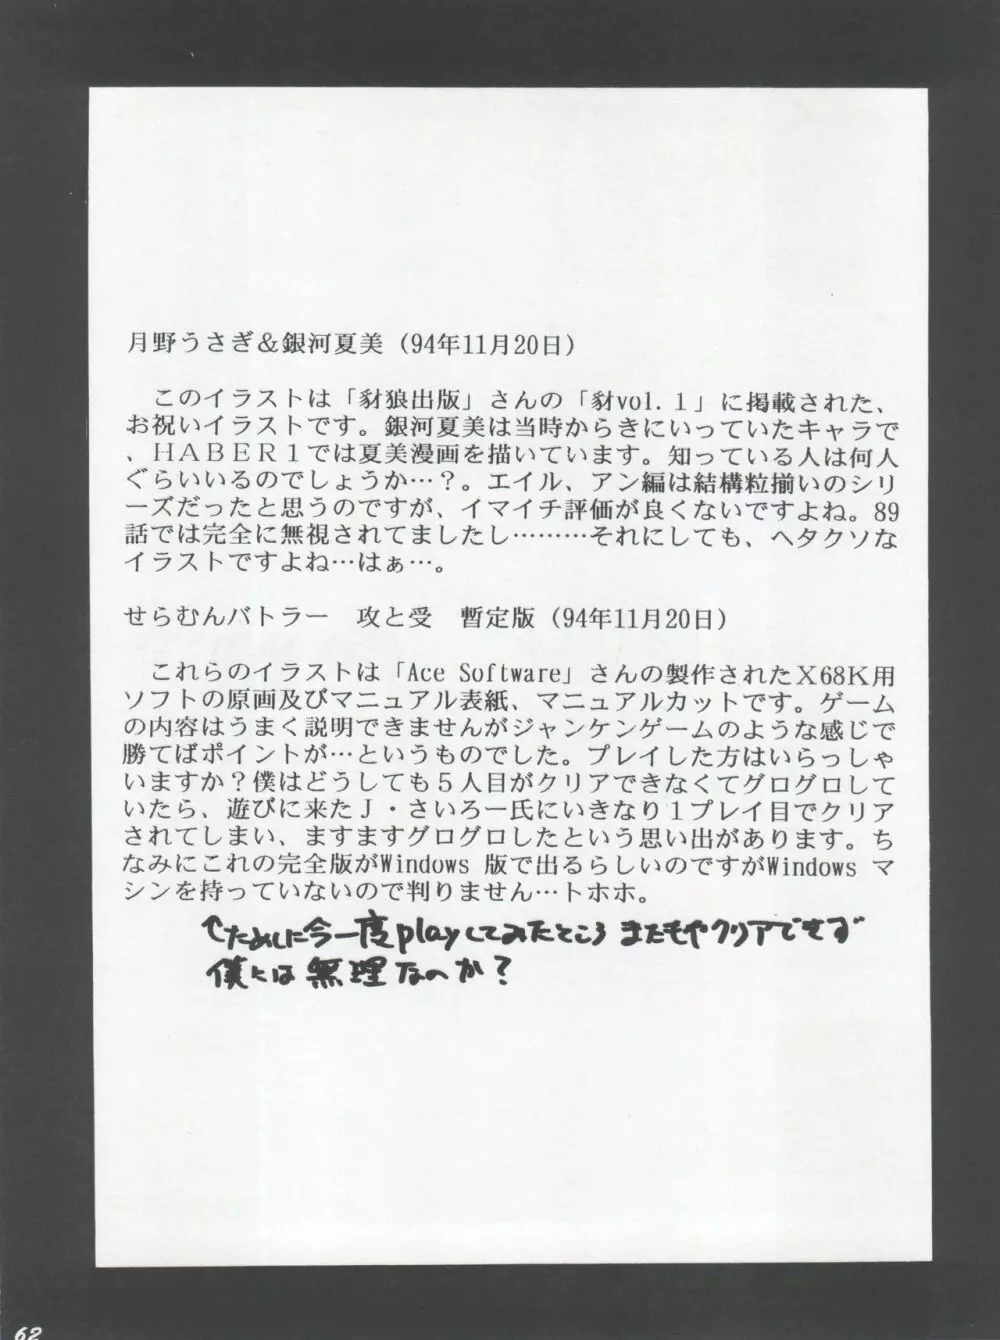 月野うさぎ＆銀河夏美（94年11月20日）
このイラストは「豺狼出版」さんの「豺vol.1」に掲載された、
お祝いイラストです。銀河夏美は当時からきにいっていたキャラで
、ＨＡＢＥＲ１では夏美漫画を描いています。知っている人は何人
ぐらいいるのでしょうか…？。エイル、アン編は結構粒揃いのシリ
ーズだったと思うのですが、イマイチ評価が良くないですよね。89
話では完全に無視されてましたし………それにしても、ヘタクソな
イラストですよね…はぁ…。
せらむんバトラー　攻と受　暫定版（94年11月20日）
これらのイラストは「Ace Software」さんの製作されたＸ68Ｋ用
ソフトの原画及びマニュアル表紙、マニュアルカットです。ゲーム
の内容はうまく説明できませんがジャンケンゲームのような感じで
勝てばポイントが…というものでした。プレイした方はいらっしゃ
いますか？僕はどうしても５人目がクリアできなくてグログロして
いたら、遊びに来たＪ・さいろー氏にいきなり１プレイ目でクリア
されてしまい、ますますグログロしたという思い出があります。ち
なみにこれの完全版がWindows 版で出るらしいのですがWindows マ
シンを持っていないので判りません…トホホ。
↑ためしに今一度playしてみたところ またもやクリアできず
僕には無理なのか？
62